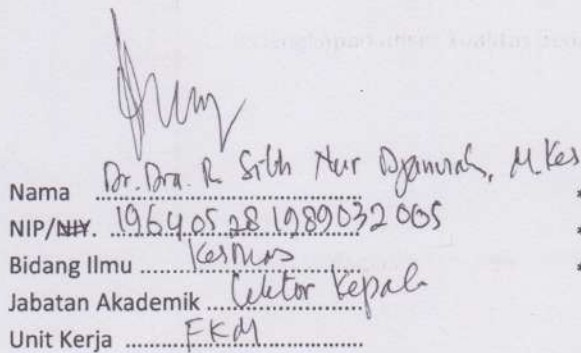 Nama Dr. Dra. R. Sitti Nur Djannah, M.Kes *
NIP/NIY. 19640528 1989032005 *
Bidang Ilmu Kesmas *
Jabatan Akademik Lektor Kepala
Unit Kerja FKM